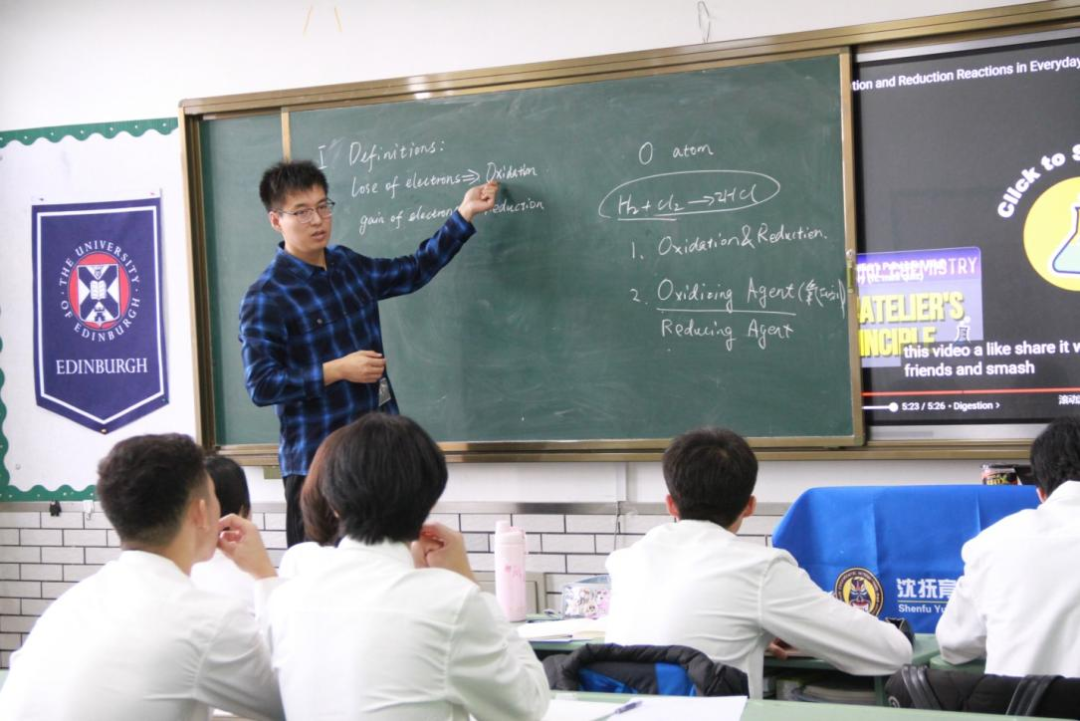 THE UNIVERSITY
OF EDINBURGH
EDINBURGH
I Definitions:
lose of electrons ⇒ Oxidation
gain of electron eduction
O atom
H₂ + Cl₂ → 2HCl
1. Oxidation & Reduction.
2. Oxidizing Agent
Reducing Agent
tion and Reduction Reactions in Everyday
Click to S
ATELIER'S
this video a like share it w
friends and smash
5:23 / 5:26 • Digestion >
沈抚育
Shenfu Yu